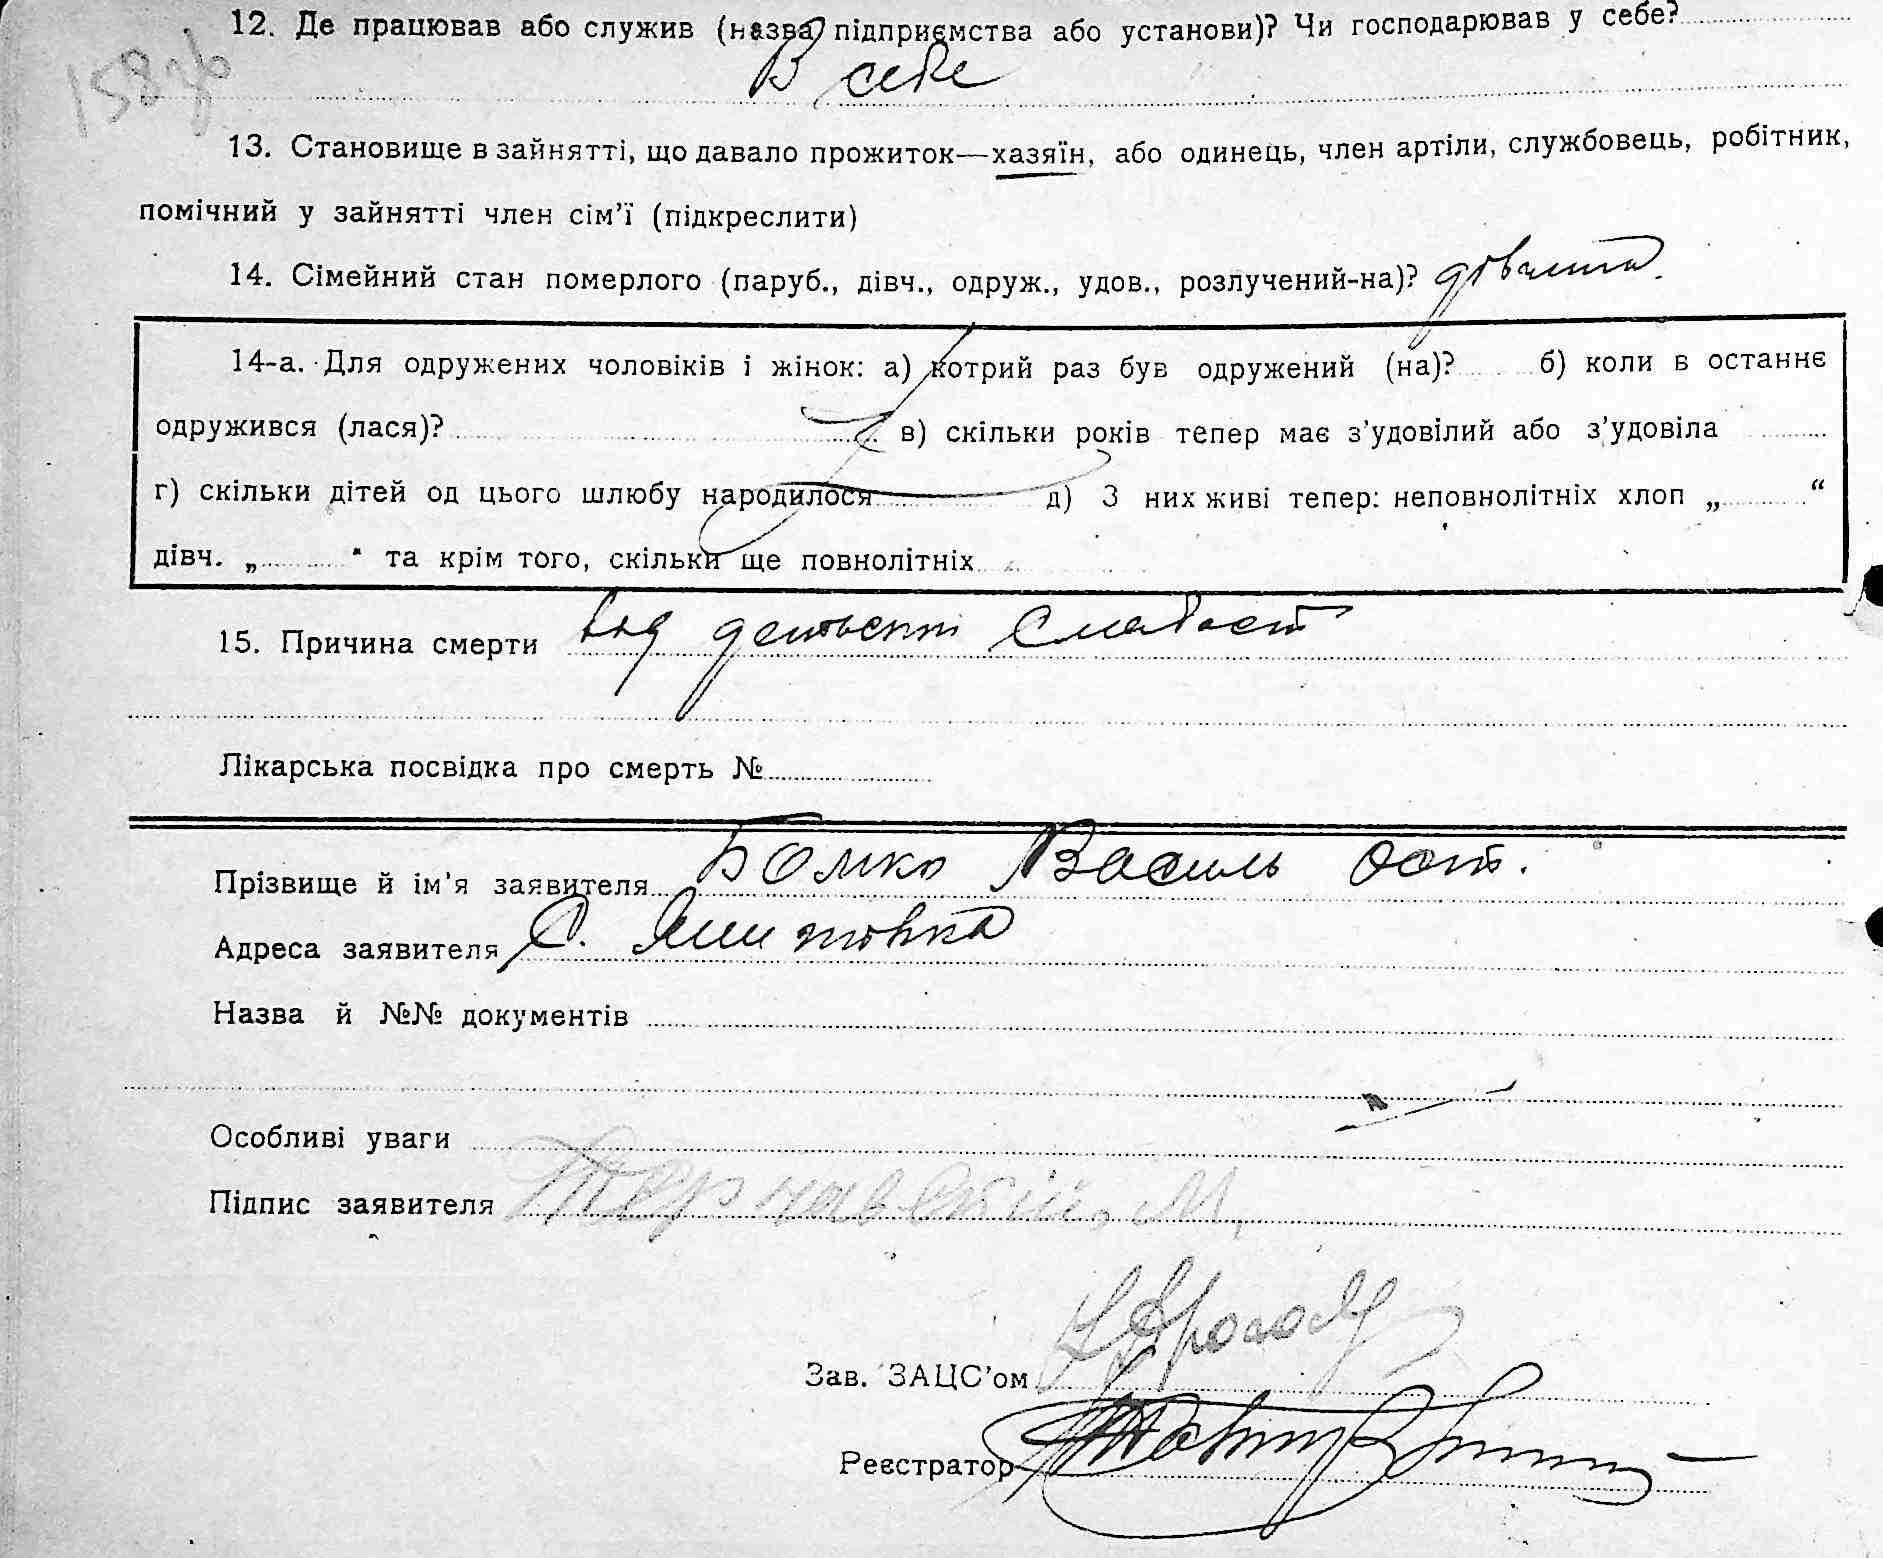 12. Де працював або служив (назва підприємства або установи)? Чи господарював у себе?
158зв
В себе
13. Становище в зайнятті, що давало прожиток—хазяїн, або одинець, член артіли, службовець, робітник,
помічний у зайнятті член сім’ї (підкреслити)
14. Сімейний стан померлого (паруб., дівч., одруж., удов., розлучений-на)?
14-а. Для одружених чоловіків і жінок: а) котрий раз був одружений (на)? б) коли в останнє
одружився (лася)? в) скільки років тепер має з’удовілий або з’удовіла
г) скільки дітей од цього шлюбу народилося д) З них живі тепер: неповнолітніх хлоп „ “
дівч. „ “ та крім того, скільки ще повнолітніх
15. Причина смерти від
Лікарська посвідка про смерть №
Прізвище й ім’я заявителя Бомко Василь Ост.
Адреса заявителя С.
Назва й №№ документів
Особливі уваги
Підпис заявителя Тернавский М.
Зав. ЗАЦС’ом
Реєстратор